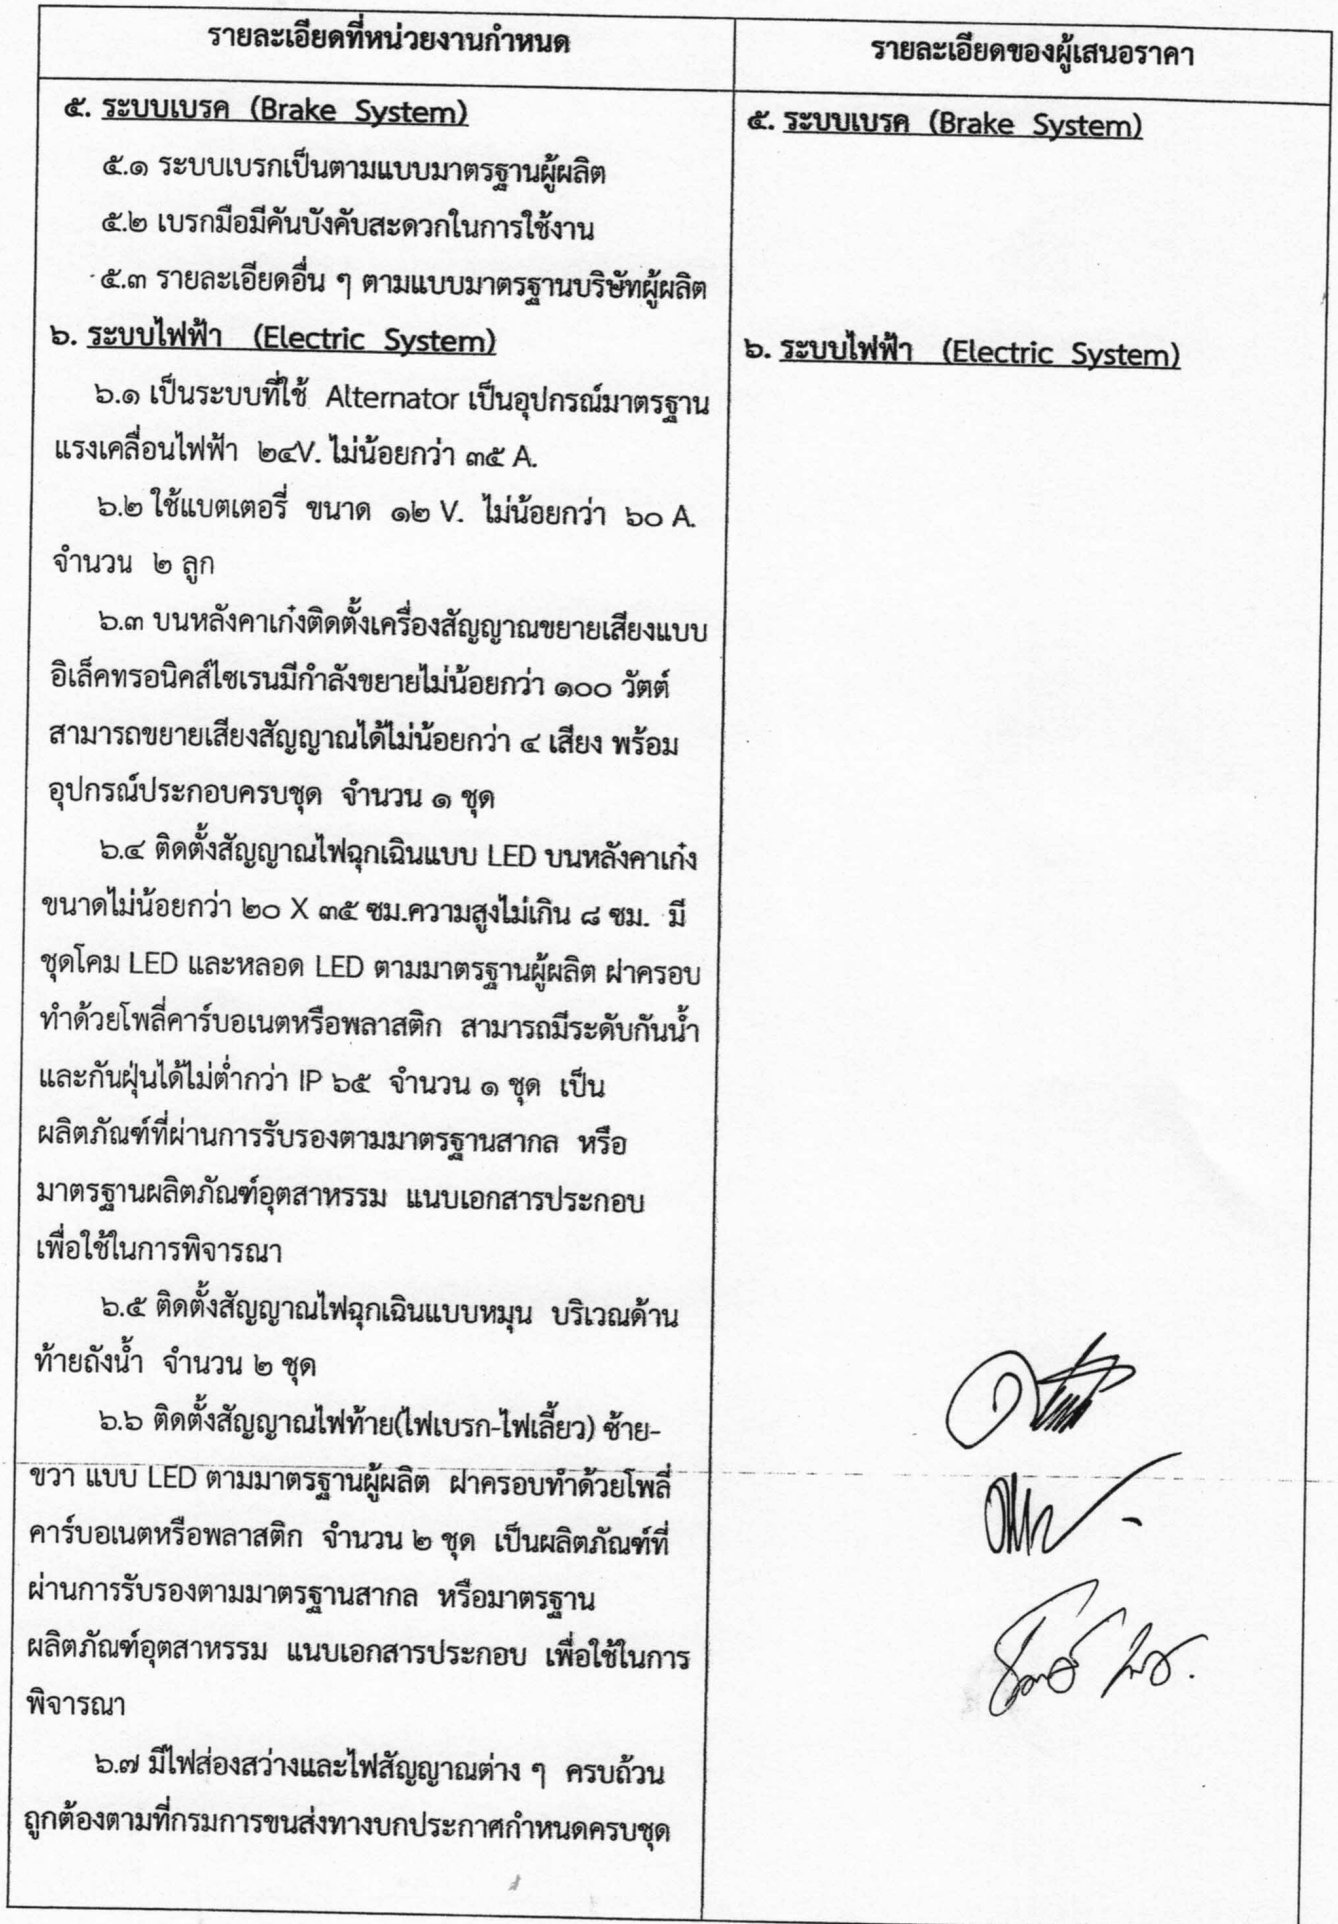 รายละเอียดที่หน่วยงานกำหนด
รายละเอียดของผู้เสนอราคา
๕. ระบบเบรค (Brake System)
๕.๑ ระบบเบรกเป็นตามแบบมาตรฐานผู้ผลิต
๕.๒ เบรกมือมีคันบังคับสะดวกในการใช้งาน
๕.๓ รายละเอียดอื่น ๆ ตามแบบมาตรฐานบริษัทผู้ผลิต
๖. ระบบไฟฟ้า (Electric System)
๖.๑ เป็นระบบที่ใช้ Alternator เป็นอุปกรณ์มาตรฐาน
แรงเคลื่อนไฟฟ้า ๒๔V. ไม่น้อยกว่า ๓๕ A.
๖.๒ ใช้แบตเตอรี่ ขนาด ๑๒ V. ไม่น้อยกว่า ๖๐ A.
จำนวน ๒ ลูก
๖.๓ บนหลังคาเก๋งติดตั้งเครื่องสัญญาณขยายเสียงแบบ
อิเล็คทรอนิคส์ไซเรนมีกำลังขยายไม่น้อยกว่า ๑๐๐ วัตต์
สามารถขยายเสียงสัญญาณได้ไม่น้อยกว่า ๔ เสียง พร้อม
อุปกรณ์ประกอบครบชุด จำนวน ๑ ชุด
๖.๔ ติดตั้งสัญญาณไฟฉุกเฉินแบบ LED บนหลังคาเก๋ง
ขนาดไม่น้อยกว่า ๒๐ X ๓๕ ซม.ความสูงไม่เกิน ๘ ซม. มี
ชุดโคม LED และหลอด LED ตามมาตรฐานผู้ผลิต ฝาครอบ
ทำด้วยโพลี่คาร์บอเนตหรือพลาสติก สามารถมีระดับกันน้ำ
และกันฝุ่นได้ไม่ต่ำกว่า IP ๖๕ จำนวน ๑ ชุด เป็น
ผลิตภัณฑ์ที่ผ่านการรับรองตามมาตรฐานสากล หรือ
มาตรฐานผลิตภัณฑ์อุตสาหรรม แนบเอกสารประกอบ
เพื่อใช้ในการพิจารณา
๖.๕ ติดตั้งสัญญาณไฟฉุกเฉินแบบหมุน บริเวณด้าน
ท้ายถังน้ำ จำนวน ๒ ชุด
๖.๖ ติดตั้งสัญญาณไฟท้าย(ไฟเบรก-ไฟเลี้ยว) ซ้าย-
ขวา แบบ LED ตามมาตรฐานผู้ผลิต ฝาครอบทำด้วยโพลี่
คาร์บอเนตหรือพลาสติก จำนวน ๒ ชุด เป็นผลิตภัณฑ์ที่
ผ่านการรับรองตามมาตรฐานสากล หรือมาตรฐาน
ผลิตภัณฑ์อุตสาหรรม แนบเอกสารประกอบ เพื่อใช้ในการ
พิจารณา
๖.๗ มีไฟส่องสว่างและไฟสัญญาณต่าง ๆ ครบถ้วน
ถูกต้องตามที่กรมการขนส่งทางบกประกาศกำหนดครบชุด
๕. ระบบเบรค (Brake System)
๖. ระบบไฟฟ้า (Electric System)